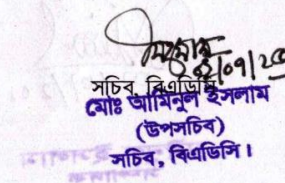 ০১/০৭/২৫
সচিব, বিএডিসি
মোঃ আমিনুল ইসলাম
(উপসচিব)
সচিব, বিএডিসি।